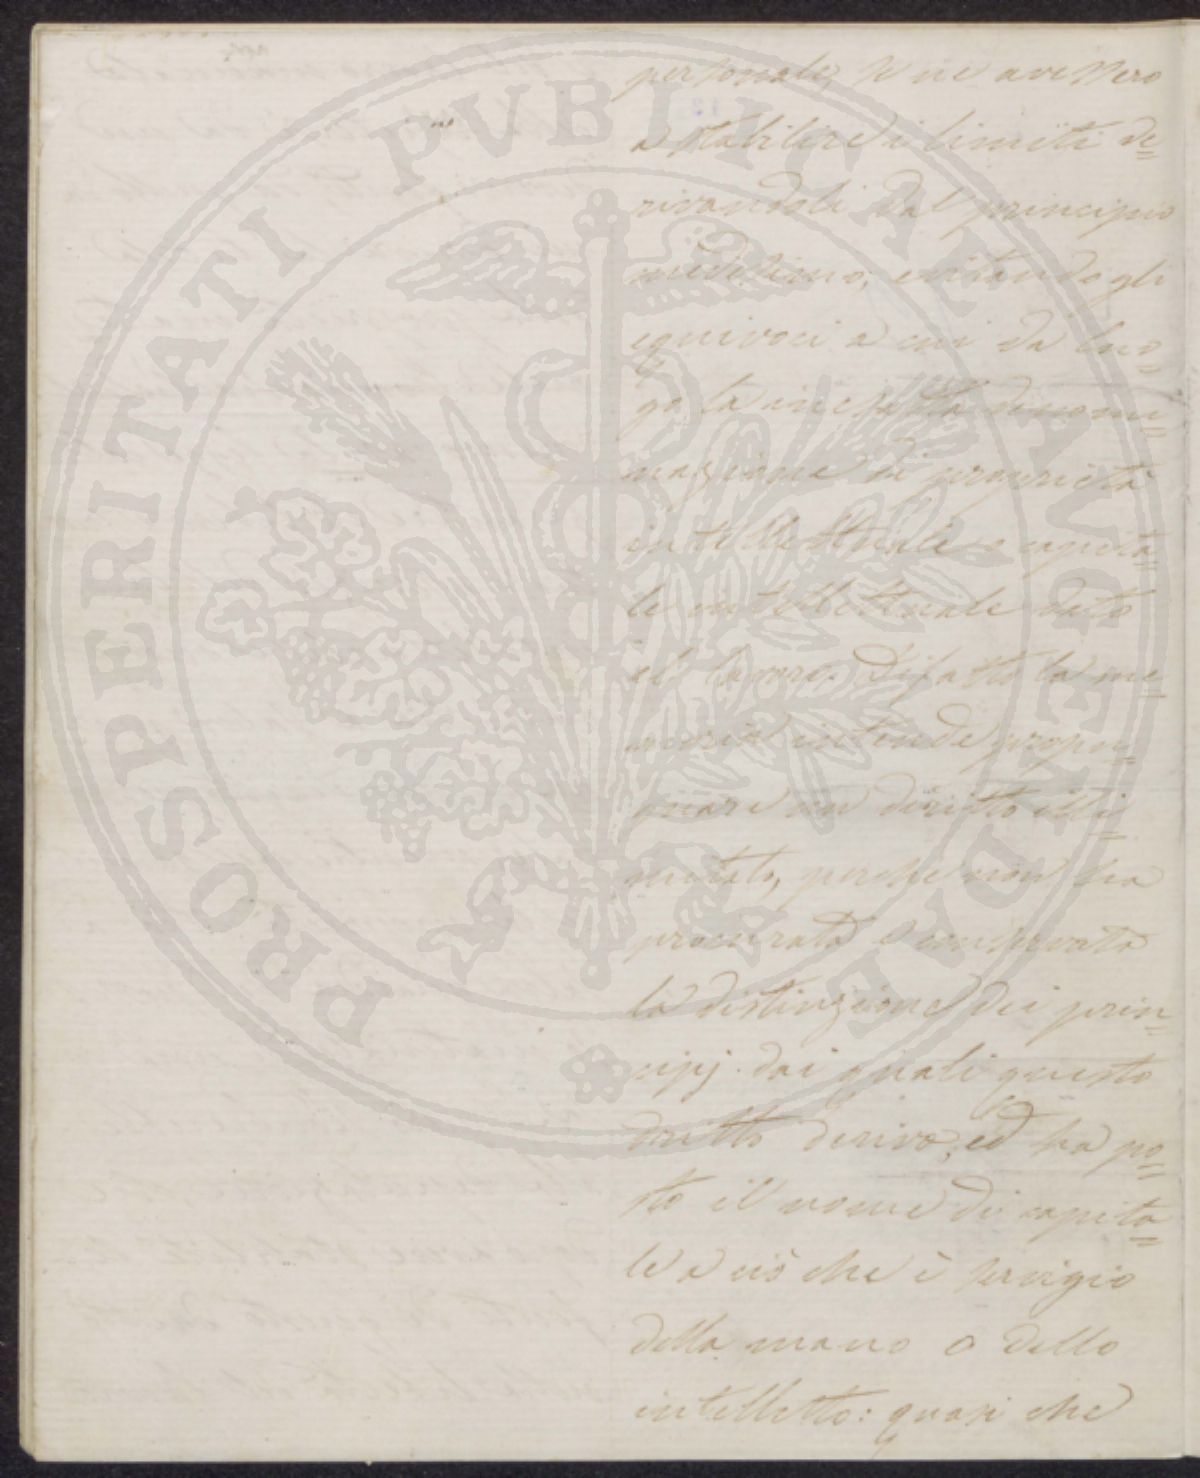 PROSPERITATI PUBLICAE AUGENDAE
personale, se ne avessero
a stabilire i limiti de=
rivandoli dal principio
medesimo; evitando gli
equivoci a cui dà luo=
go la inesatta denomi=
nazione di proprietà
intellettuale e capita=
le intellettuale dato
al lavoro. Difatto la me=
moria intende propu=
gnare un diritto illi=
mitato, perchè non ha
procurato e conservato
la distinzione dei prin=
cipj dai quali questo
dritto deriva; ed ha po=
sto il nome di capita=
le a ciò che è servigio
della mano o dello
intelletto: quasi che